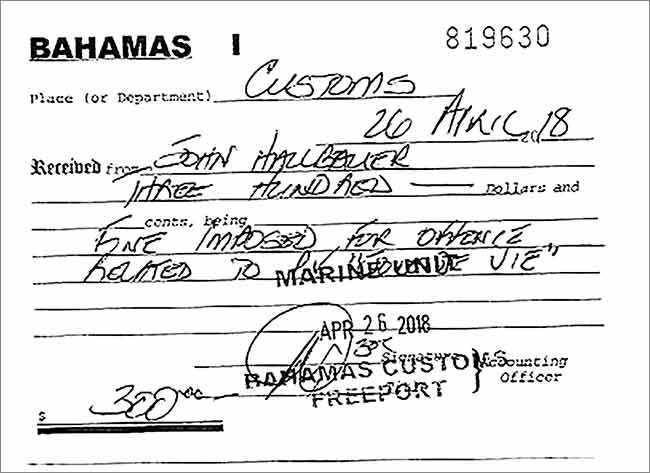 BAHAMAS I 819630
Place (or Department) CUSTOMS
26 APRIL, 2018
Received from JOHN HALLBAUER
THREE HUNDRED — Dollars and
cents, being
FINE IMPOSED FOR OFFENCE
RELATED TO DE VIE"
MARINE UNIT
APR 26 2018
Signature &
Accounting
Officer
BAHAMAS CUSTOMS
FREEPORT
$ 300